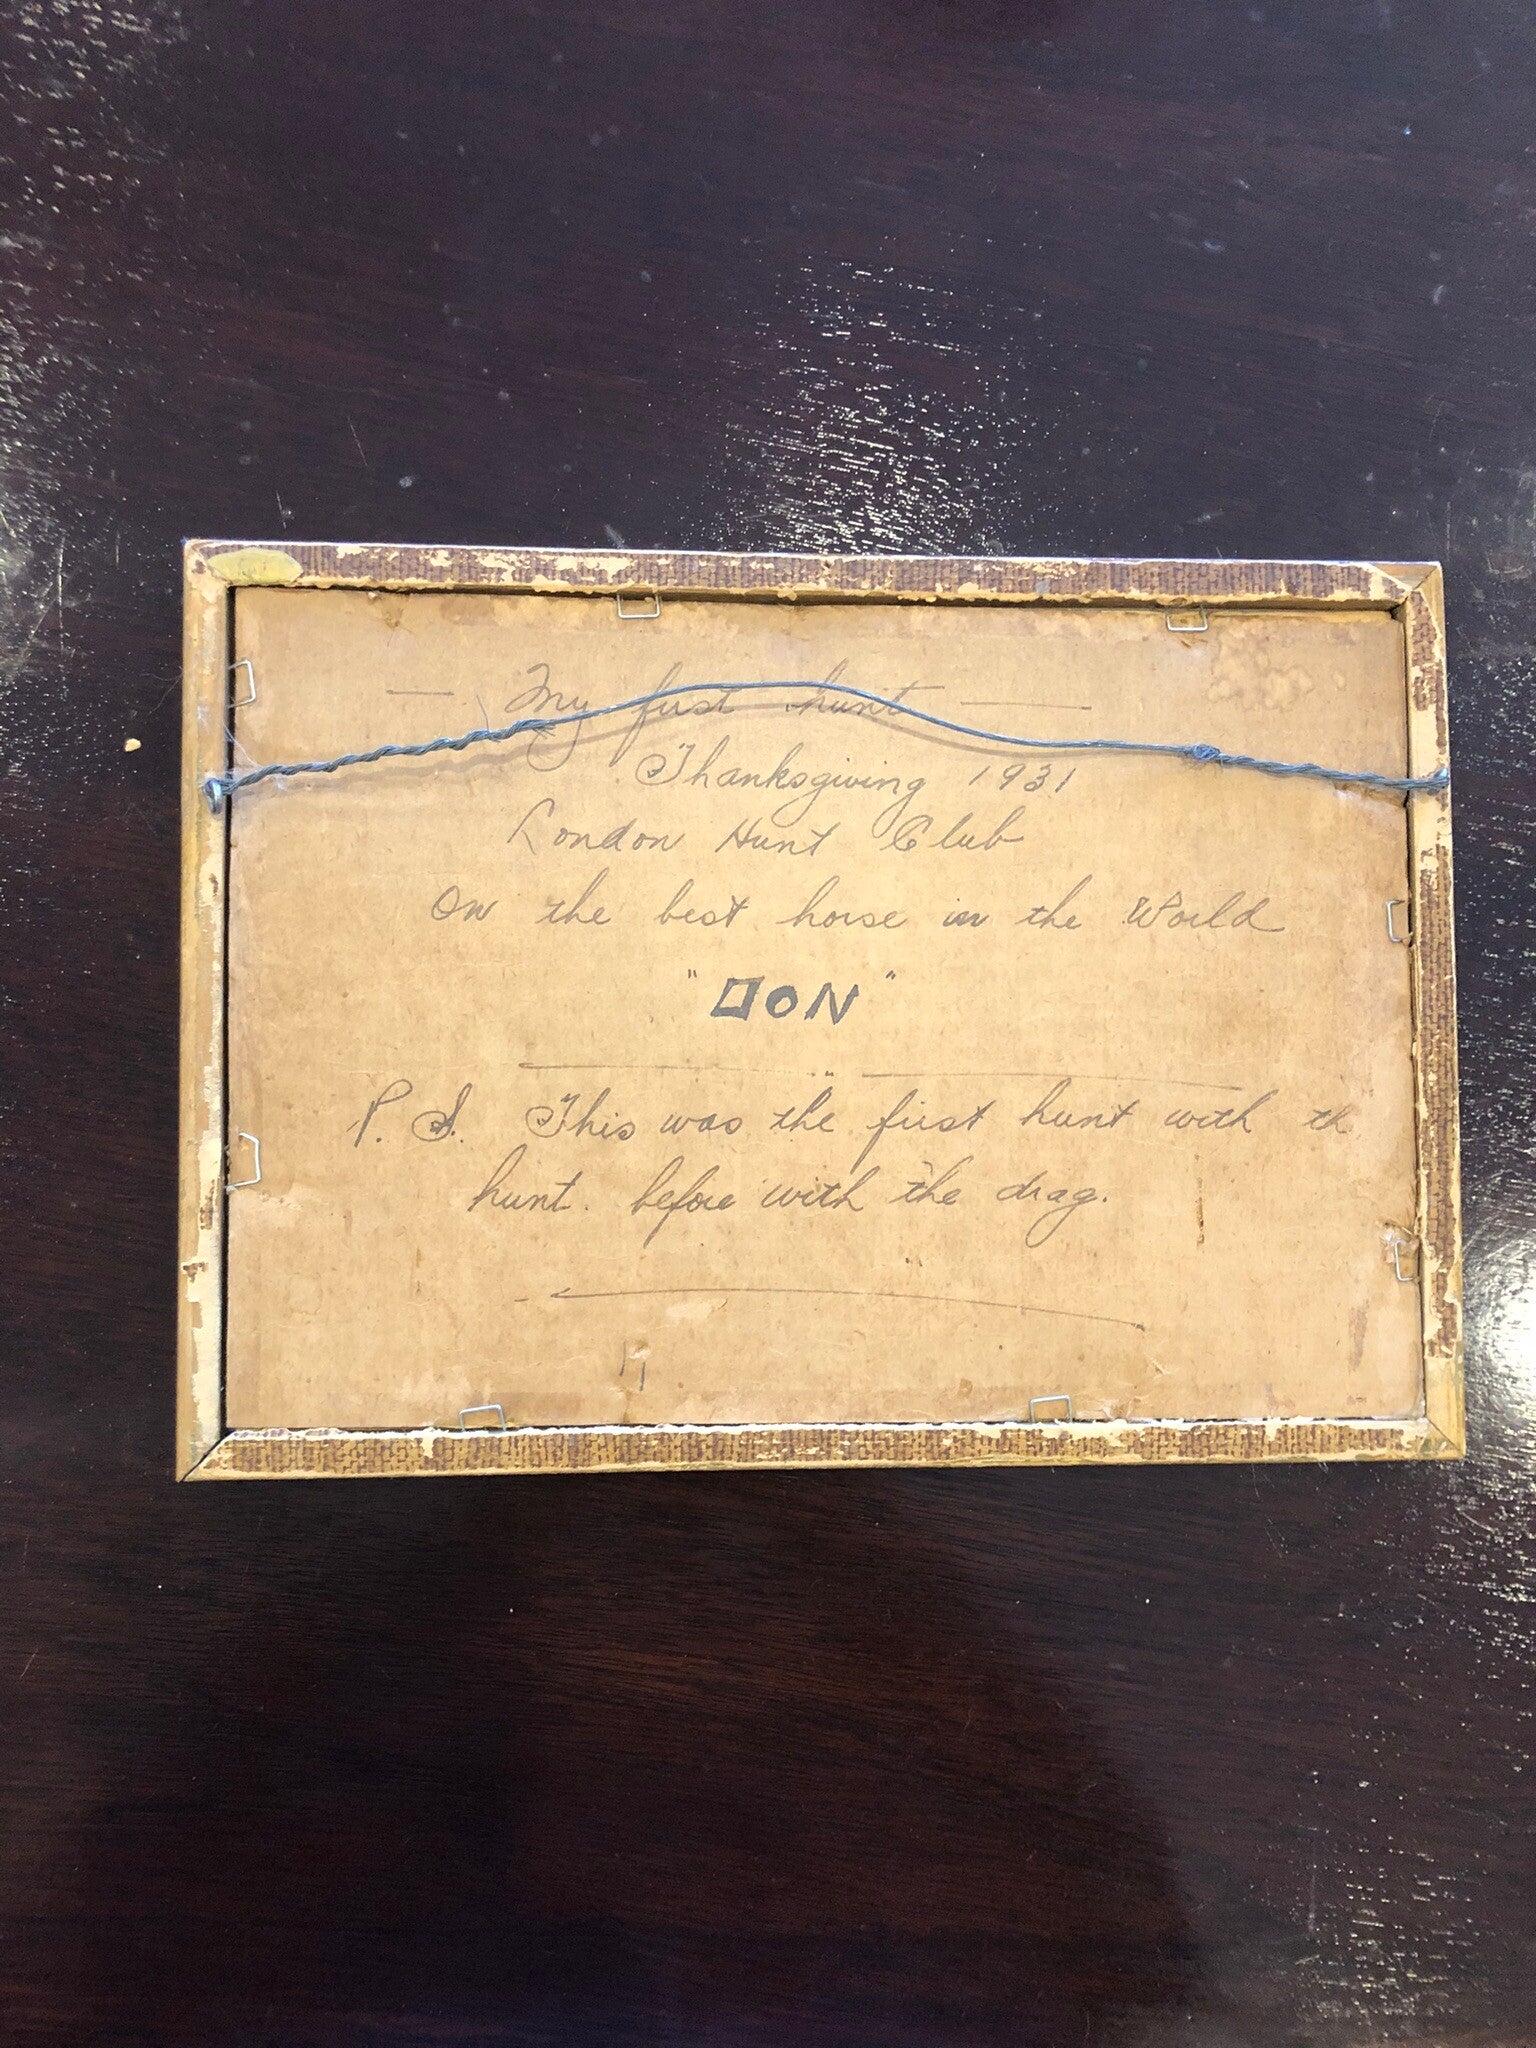 — My first hunt —
Thanksgiving 1931
London Hunt Club
On the best horse in the World
"DON"
P.S. This was the first hunt with th
hunt. before with the drag.